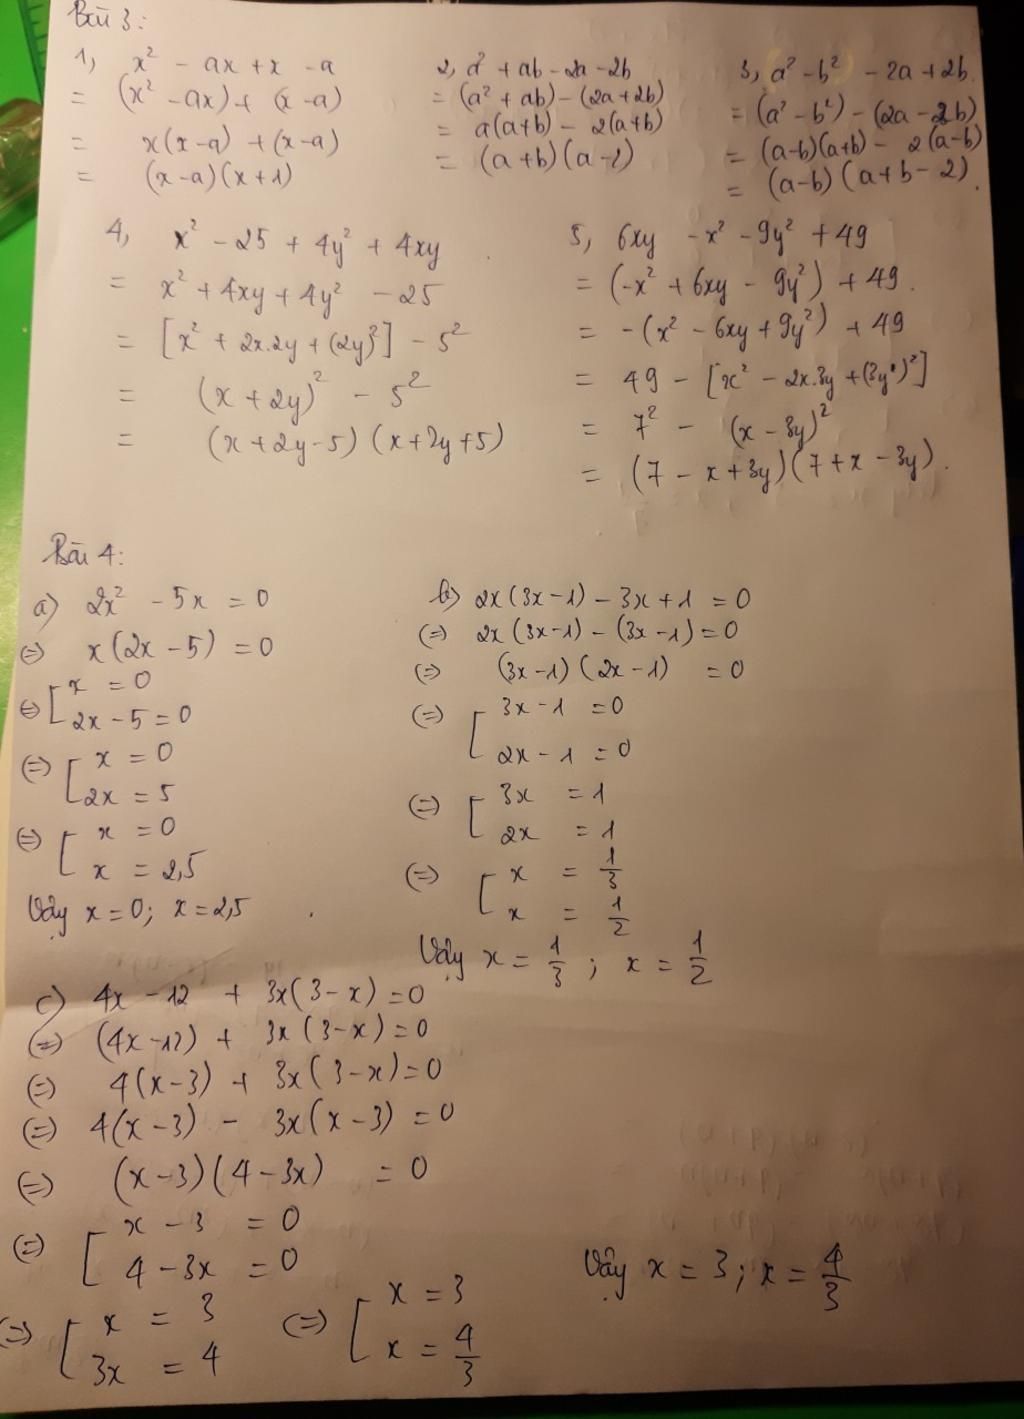 Bài 3:
1, x² - ax + x - a
= (x² - ax) + (x - a)
= x(x - a) + (x - a)
= (x - a)(x + 1)
2, a² + ab - 2a - 2b
= (a² + ab) - (2a + 2b)
= a(a+b) - 2(a+b)
= (a+b)(a-2)
3, a² - b² - 2a + 2b
= (a² - b²) - (2a - 2b)
= (a-b)(a+b) - 2(a-b)
= (a-b)(a+b-2).
4, x² - 25 + 4y² + 4xy
= x² + 4xy + 4y² - 25
= [x² + 2x.2y + (2y)²] - 5²
= (x + 2y)² - 5²
= (x + 2y - 5)(x + 2y + 5)
5, 6xy - x² - 9y² + 49
= (-x² + 6xy - 9y²) + 49.
= -(x² - 6xy + 9y²) + 49
= 49 - [x² - 2x.3y + (3y)²]
= 7² - (x - 3y)²
= (7 - x + 3y)(7 + x - 3y).
Bài 4:
a) 2x² - 5x = 0
(=) x(2x - 5) = 0
(=) [ x = 0
2x - 5 = 0
(=) [ x = 0
2x = 5
(=) [ x = 0
x = 2,5
Vậy x = 0; x = 2,5
b) 2x(3x-1) - 3x + 1 = 0
(=) 2x(3x-1) - (3x-1) = 0
(=) (3x-1)(2x-1) = 0
(=) [ 3x - 1 = 0
2x - 1 = 0
(=) [ 3x = 1
2x = 1
(=) [ x = 1/3
x = 1/2
Vậy x = 1/3 ; x = 1/2
c) 4x - 12 + 3x(3 - x) = 0
(=) (4x - 12) + 3x(3 - x) = 0
(=) 4(x - 3) + 3x(3 - x) = 0
(=) 4(x - 3) - 3x(x - 3) = 0
(=) (x - 3)(4 - 3x) = 0
(=) [ x - 3 = 0
4 - 3x = 0
(=) [ x = 3
3x = 4
(=) [ x = 3
x = 4/3
Vậy x = 3; x = 4/3